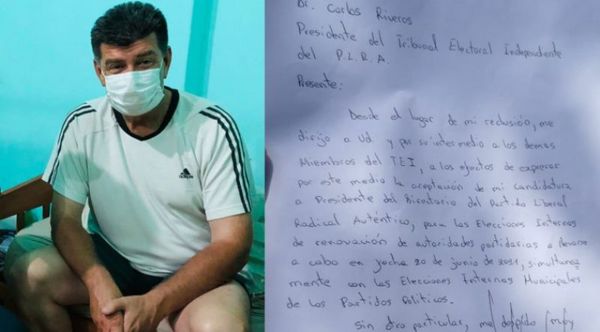 adidas
Dr. Carlos Riveros
Presidente del Tribunal Electoral Independente
del P.L.R.A.
Presente:
Desde el lugar de mi reclusión, me
dirijo a Ud. y por su intermedio a los demas
Miembros del TEI, a los efectos de expresar
por este medio la aceptación de mi candidatura
a Presidente del Directorio del Partido Liberal
Radical Auténtico, para las Elecciones Internas
de renovación de autoridades partidarias a llevarse
a cabo en fecha 20 de junio de 2021, simultanea
mente con las Elecciones Internas Municipales
de los Partidos Políticos.
Sin otro particular, me despido muy